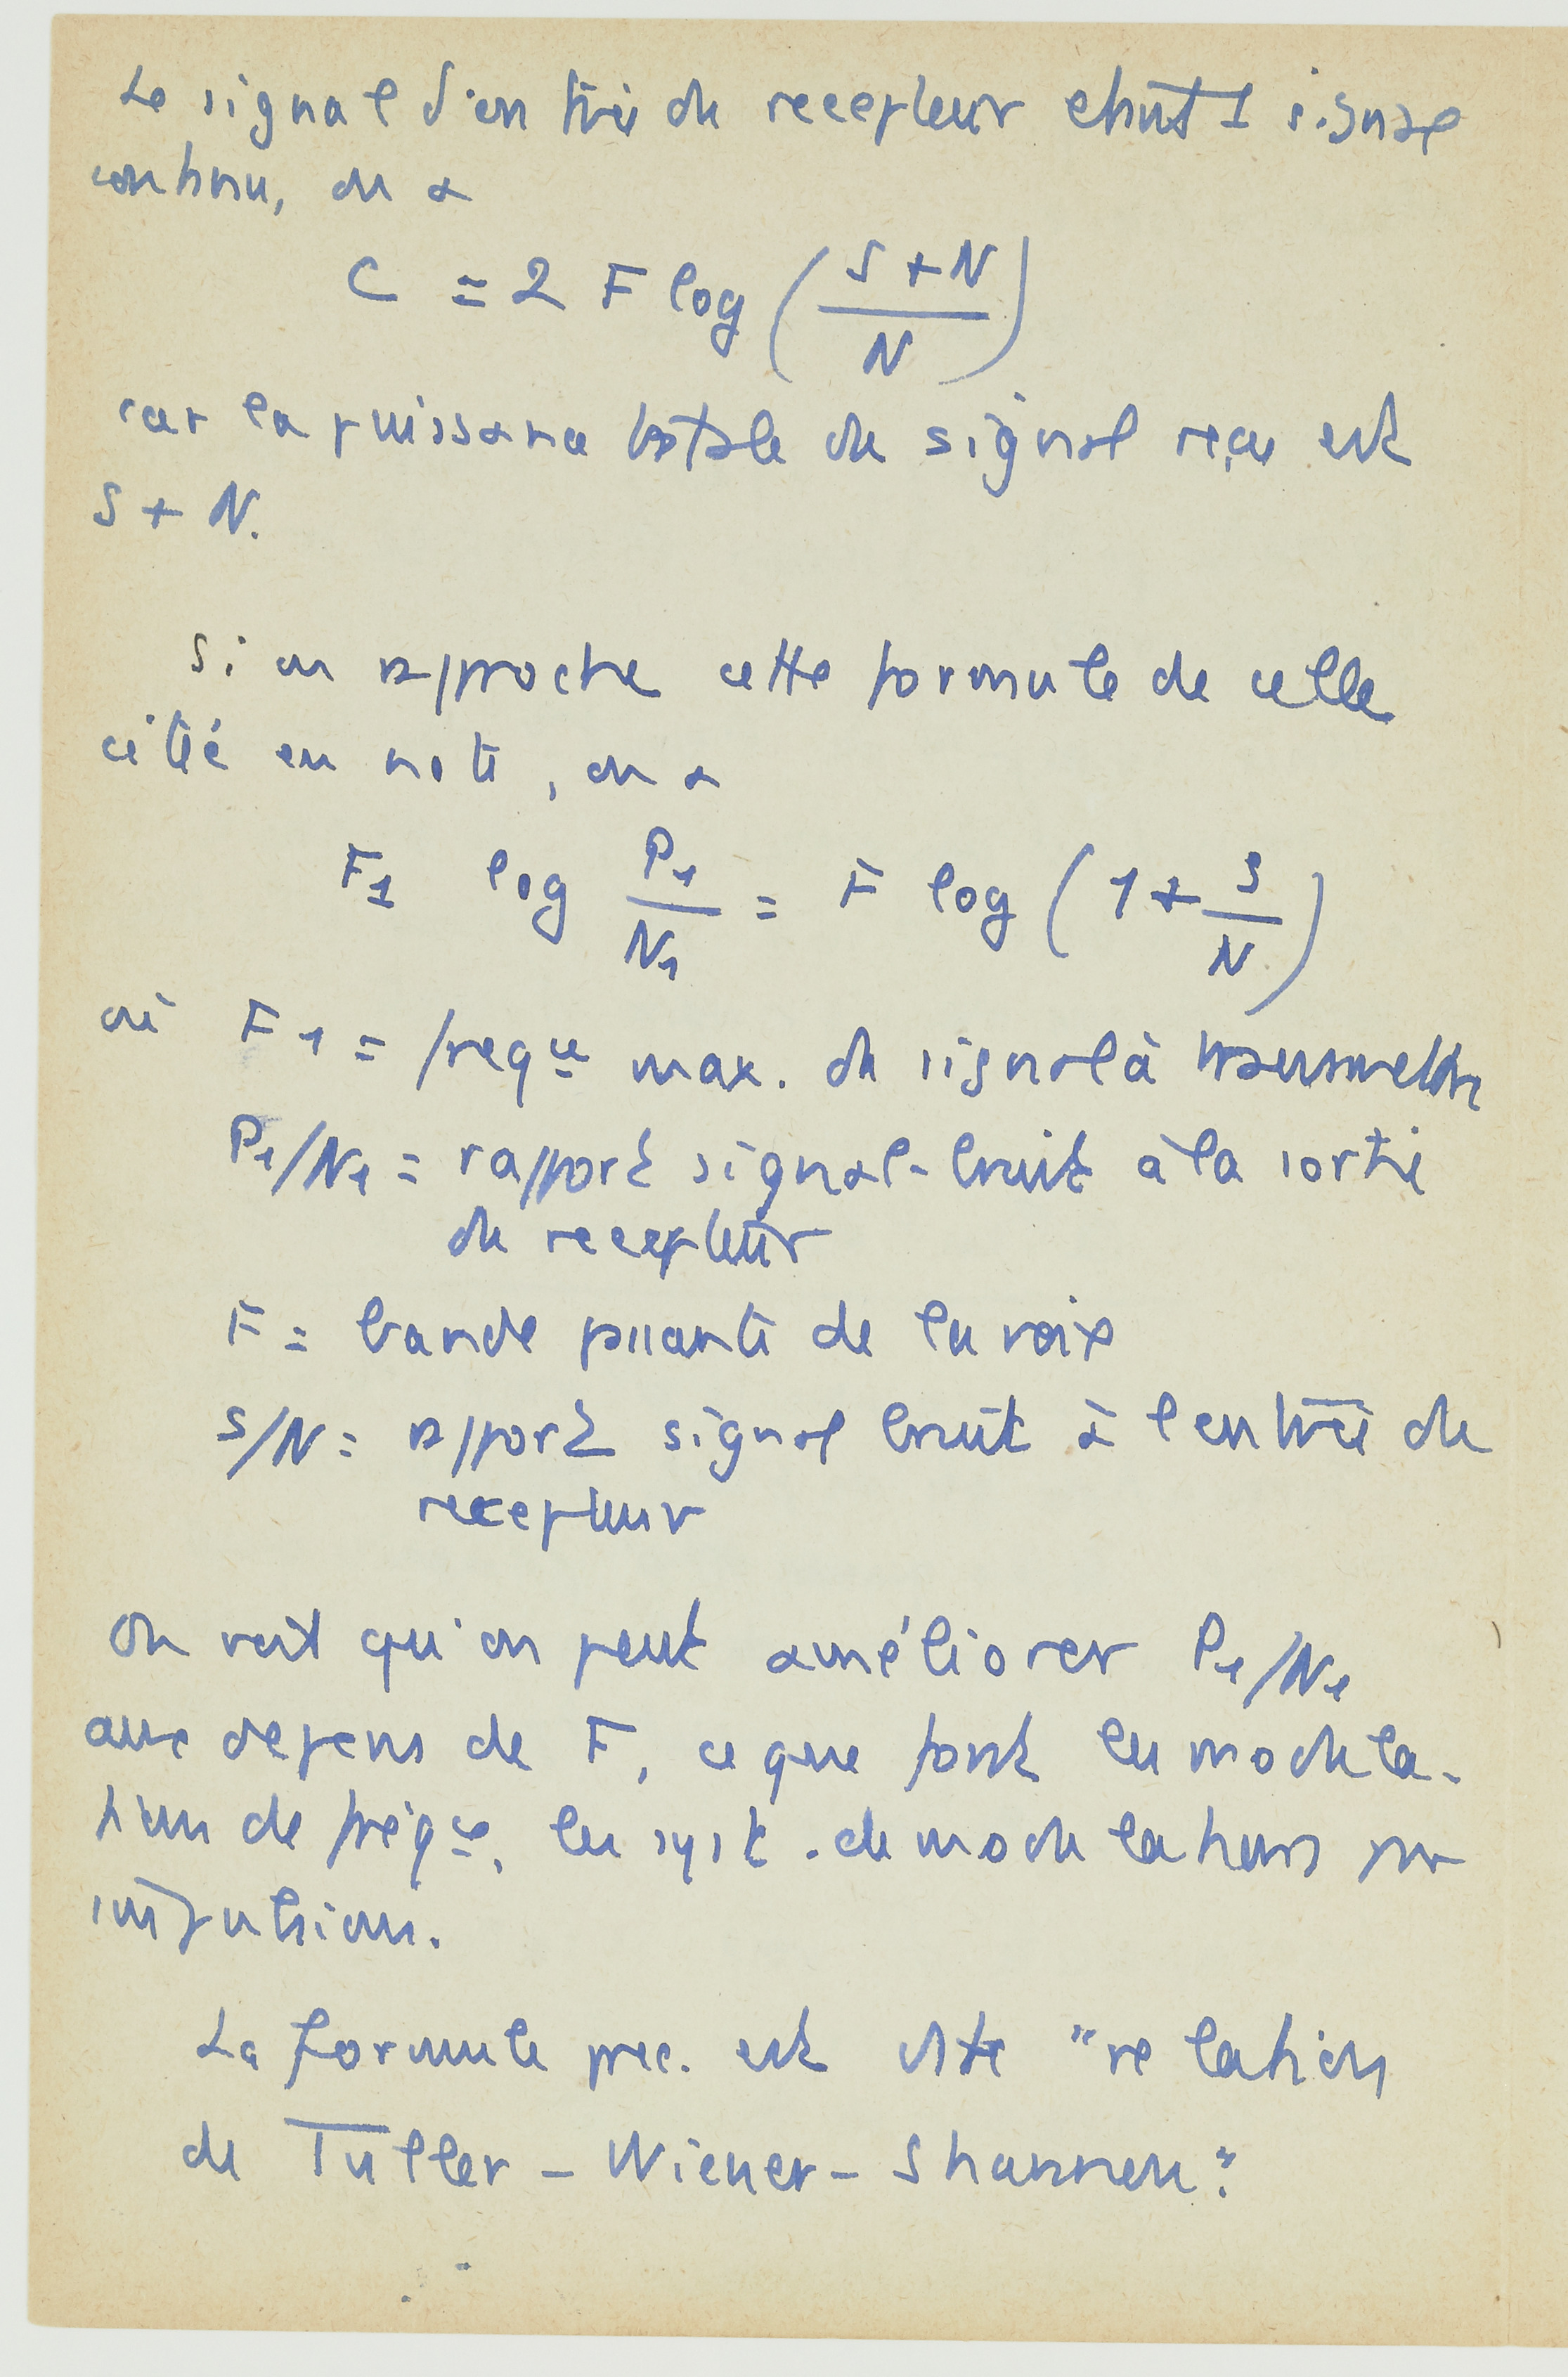 Le signal d'entrée du recepteur etant 1 signal
continu, on a
C = 2 F log ( (S + N) / N )
car la puissance totale du signal reçu est
S + N.
Si on rapproche cette formule de celle
citée en note, on a
F1 log P1/N1 = F log (1 + S/N)
où F1 = freqce max. du signal à transmettre
P1/N1 = rapport signal-bruit à la sortie
du recepteur
F = bande passante de la voix
S/N = rapport signal bruit à l'entrée du
recepteur
On voit qu'on peut améliorer P1/N1
aux depens de F, ce que font les modula-
tions de fréqce, les syst. de modulations par
impulsions.
La formule prec. est dite "relation
de Tuller - Wiener - Shannon".